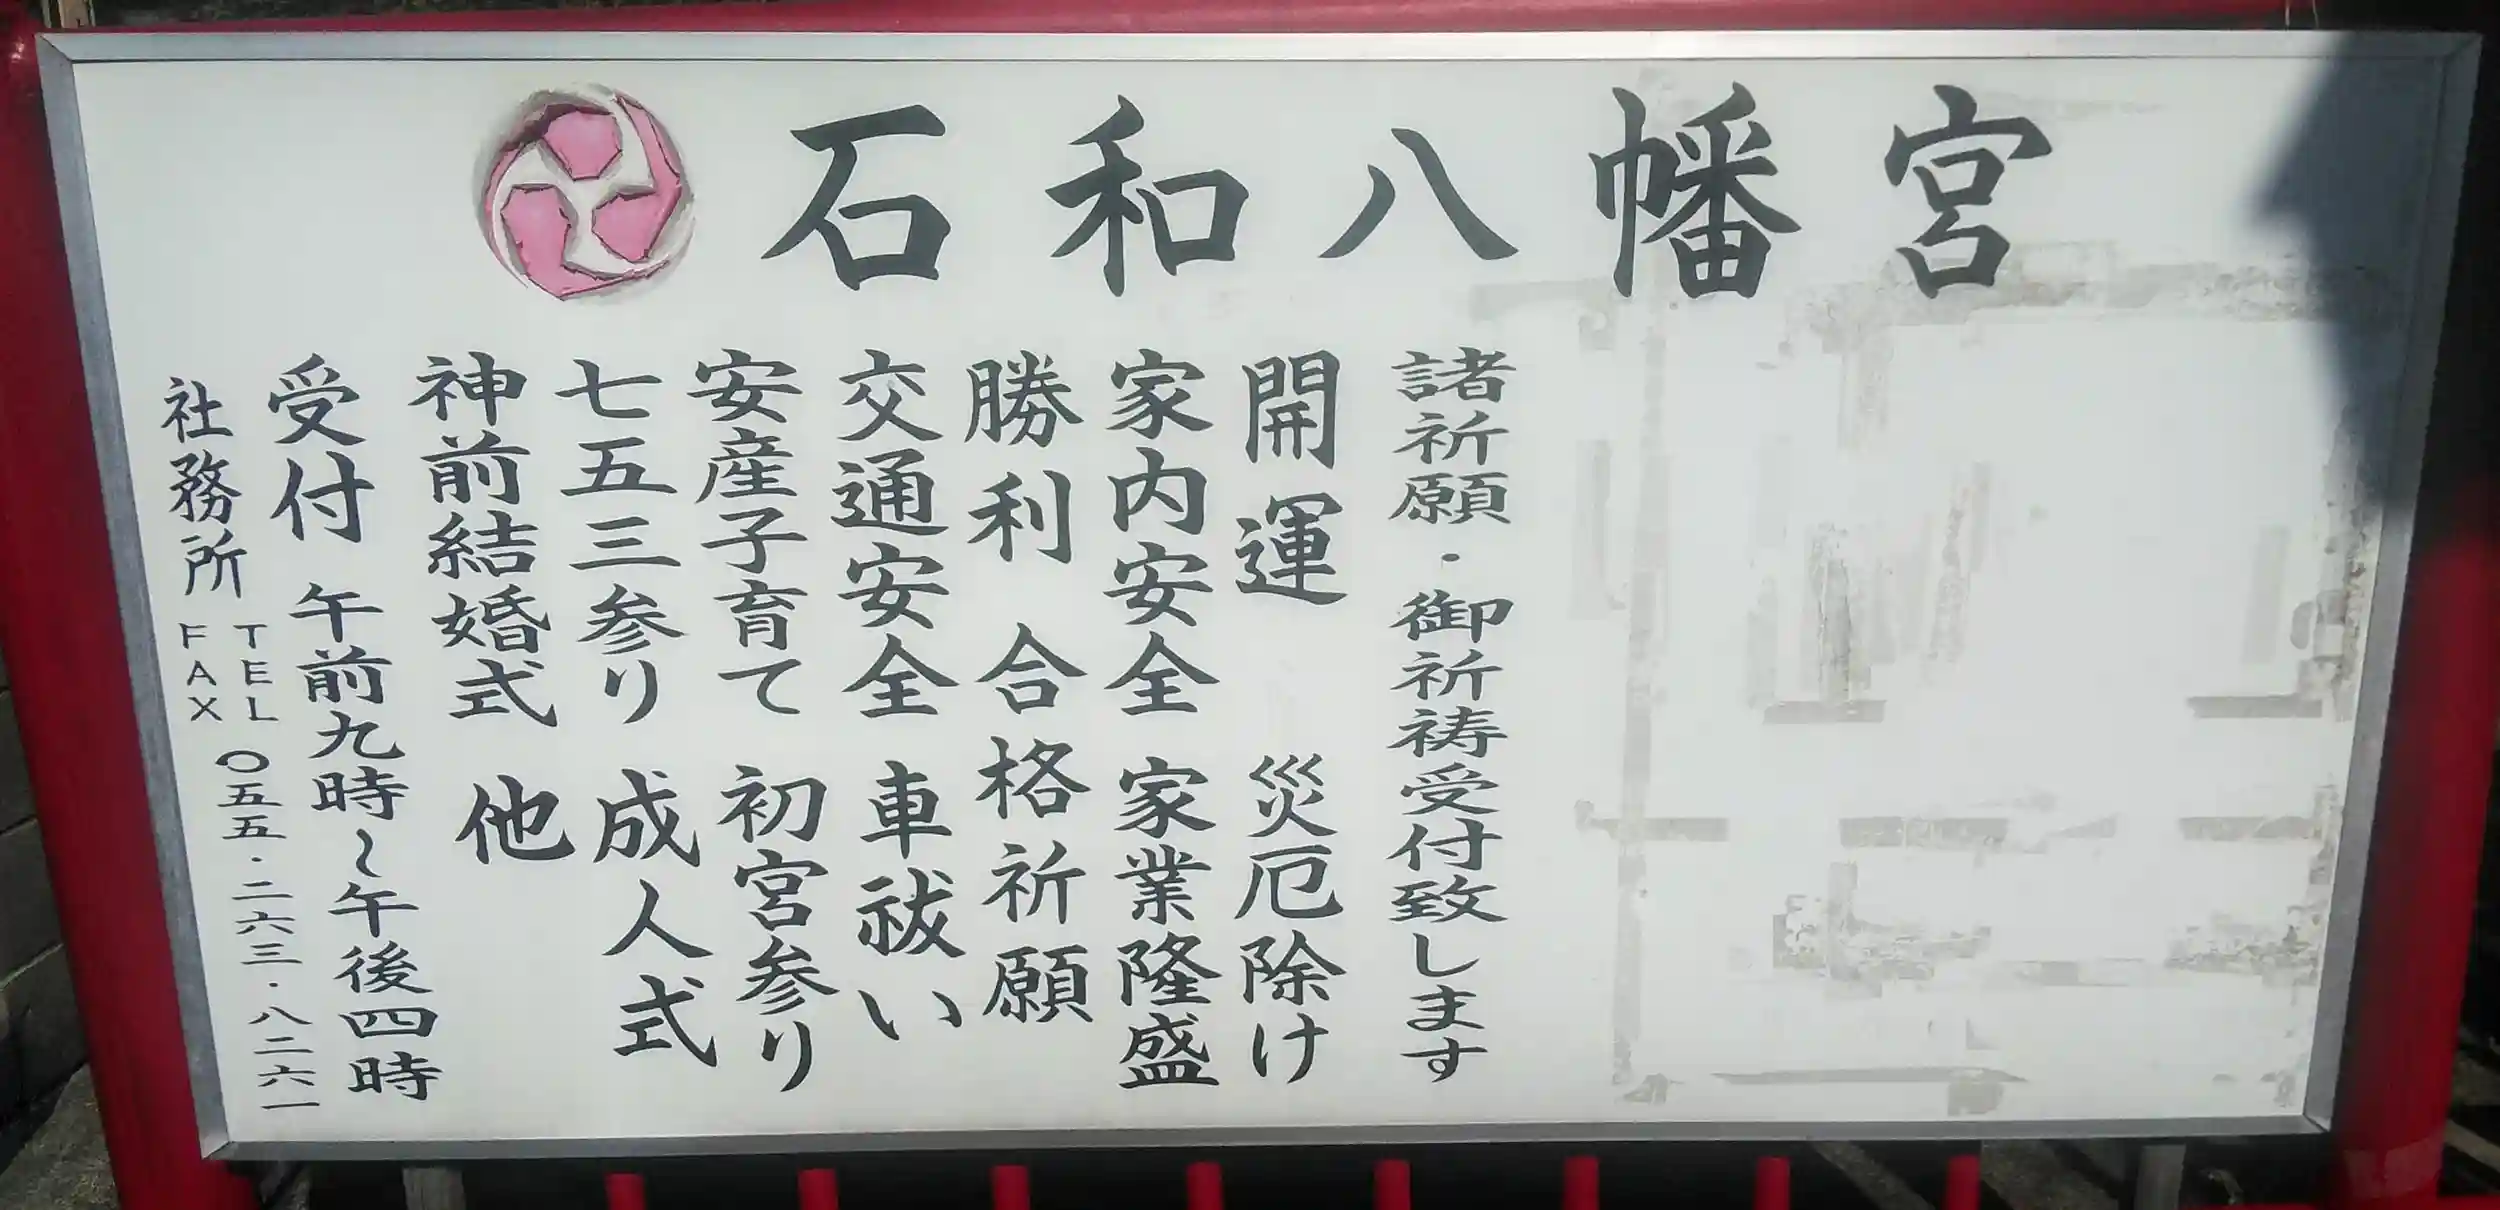 石和八幡宮
諸祈願・御祈祷受付致します
開運 災厄除け
家内安全 家業隆盛
勝利 合格祈願
交通安全 車祓い
安産子育て 初宮参り
七五三参り 成人式
神前結婚式 他
受付 午前九時~午後四時
社務所 TEL FAX 〇五五・二六三・八二六一